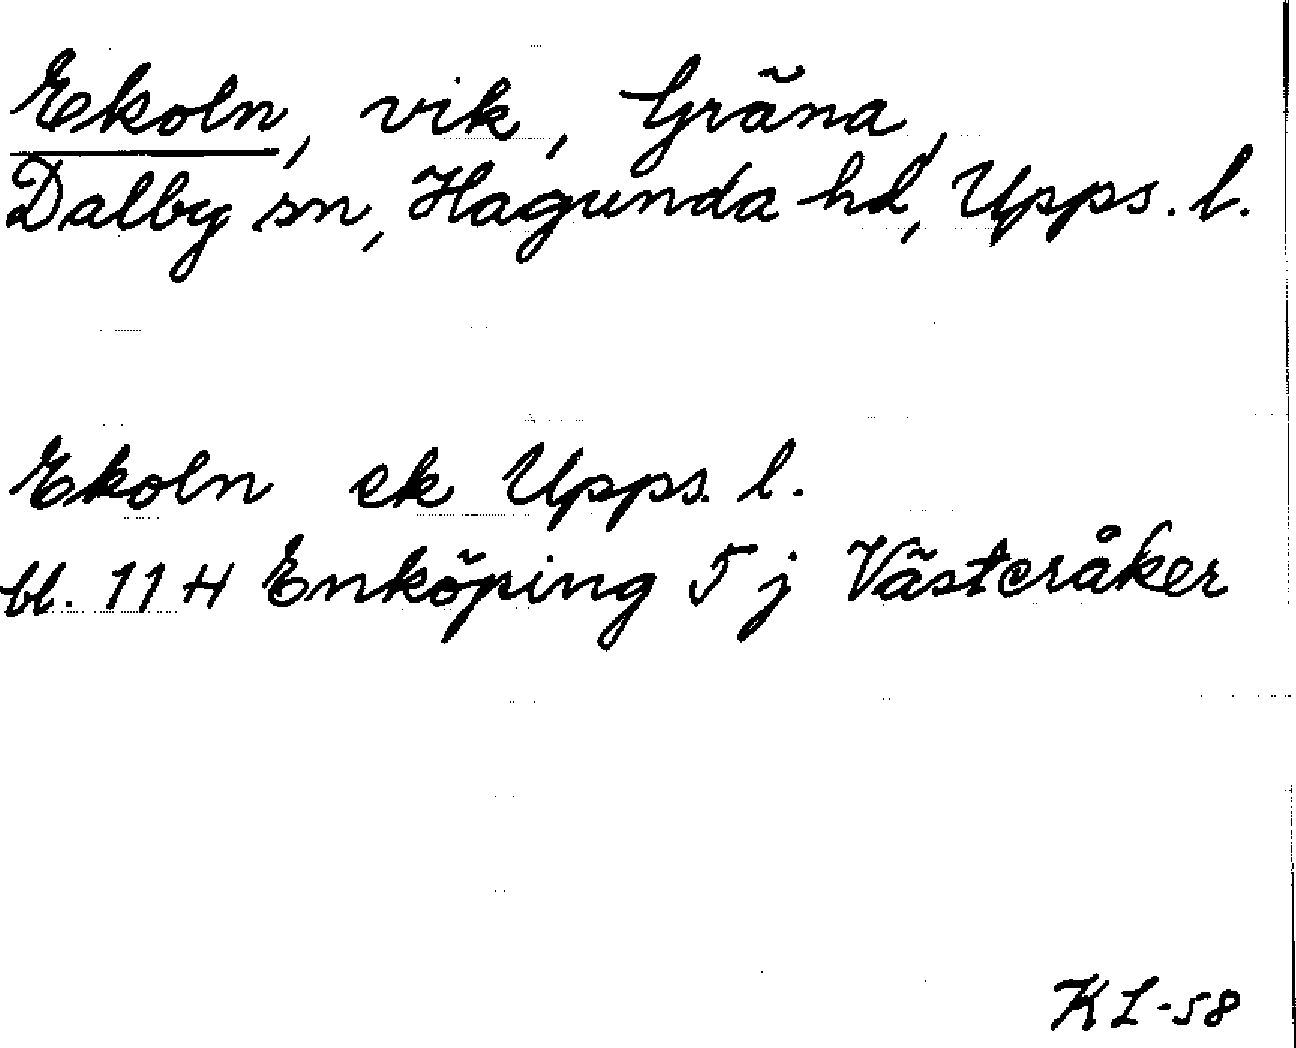 Ekoln, vik, Gräna,
Dalby sn, Hagunda hd, Upps. l.
Ekoln ek Upps. l.
bl. 11 H Enköping 5 j Västeråker
KL-58